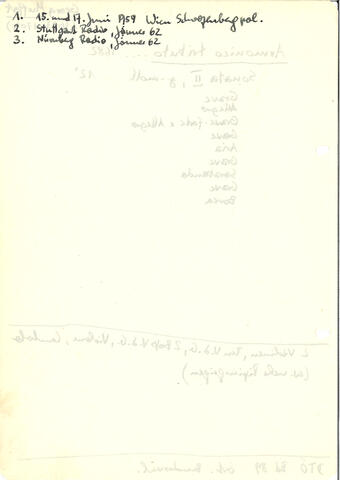 1. 15. und 17. Juni 1959 Wien Schwarzenbergpal.
2. Stuttgart Radio, Jänner 62
3. Nürnberg Radio, Jänner 62
Armonico tributo ... 1682
Sonata II, g-moll 12'
Grave
Allegro
Grave forte e Allegro
Grave
Aria
Grave
Sarabanda
Grave
Borea
2 Violinen, Ten V.d.G., 2 Baß V.d.G., Violone, Cembalo
DTÖ Bd 89